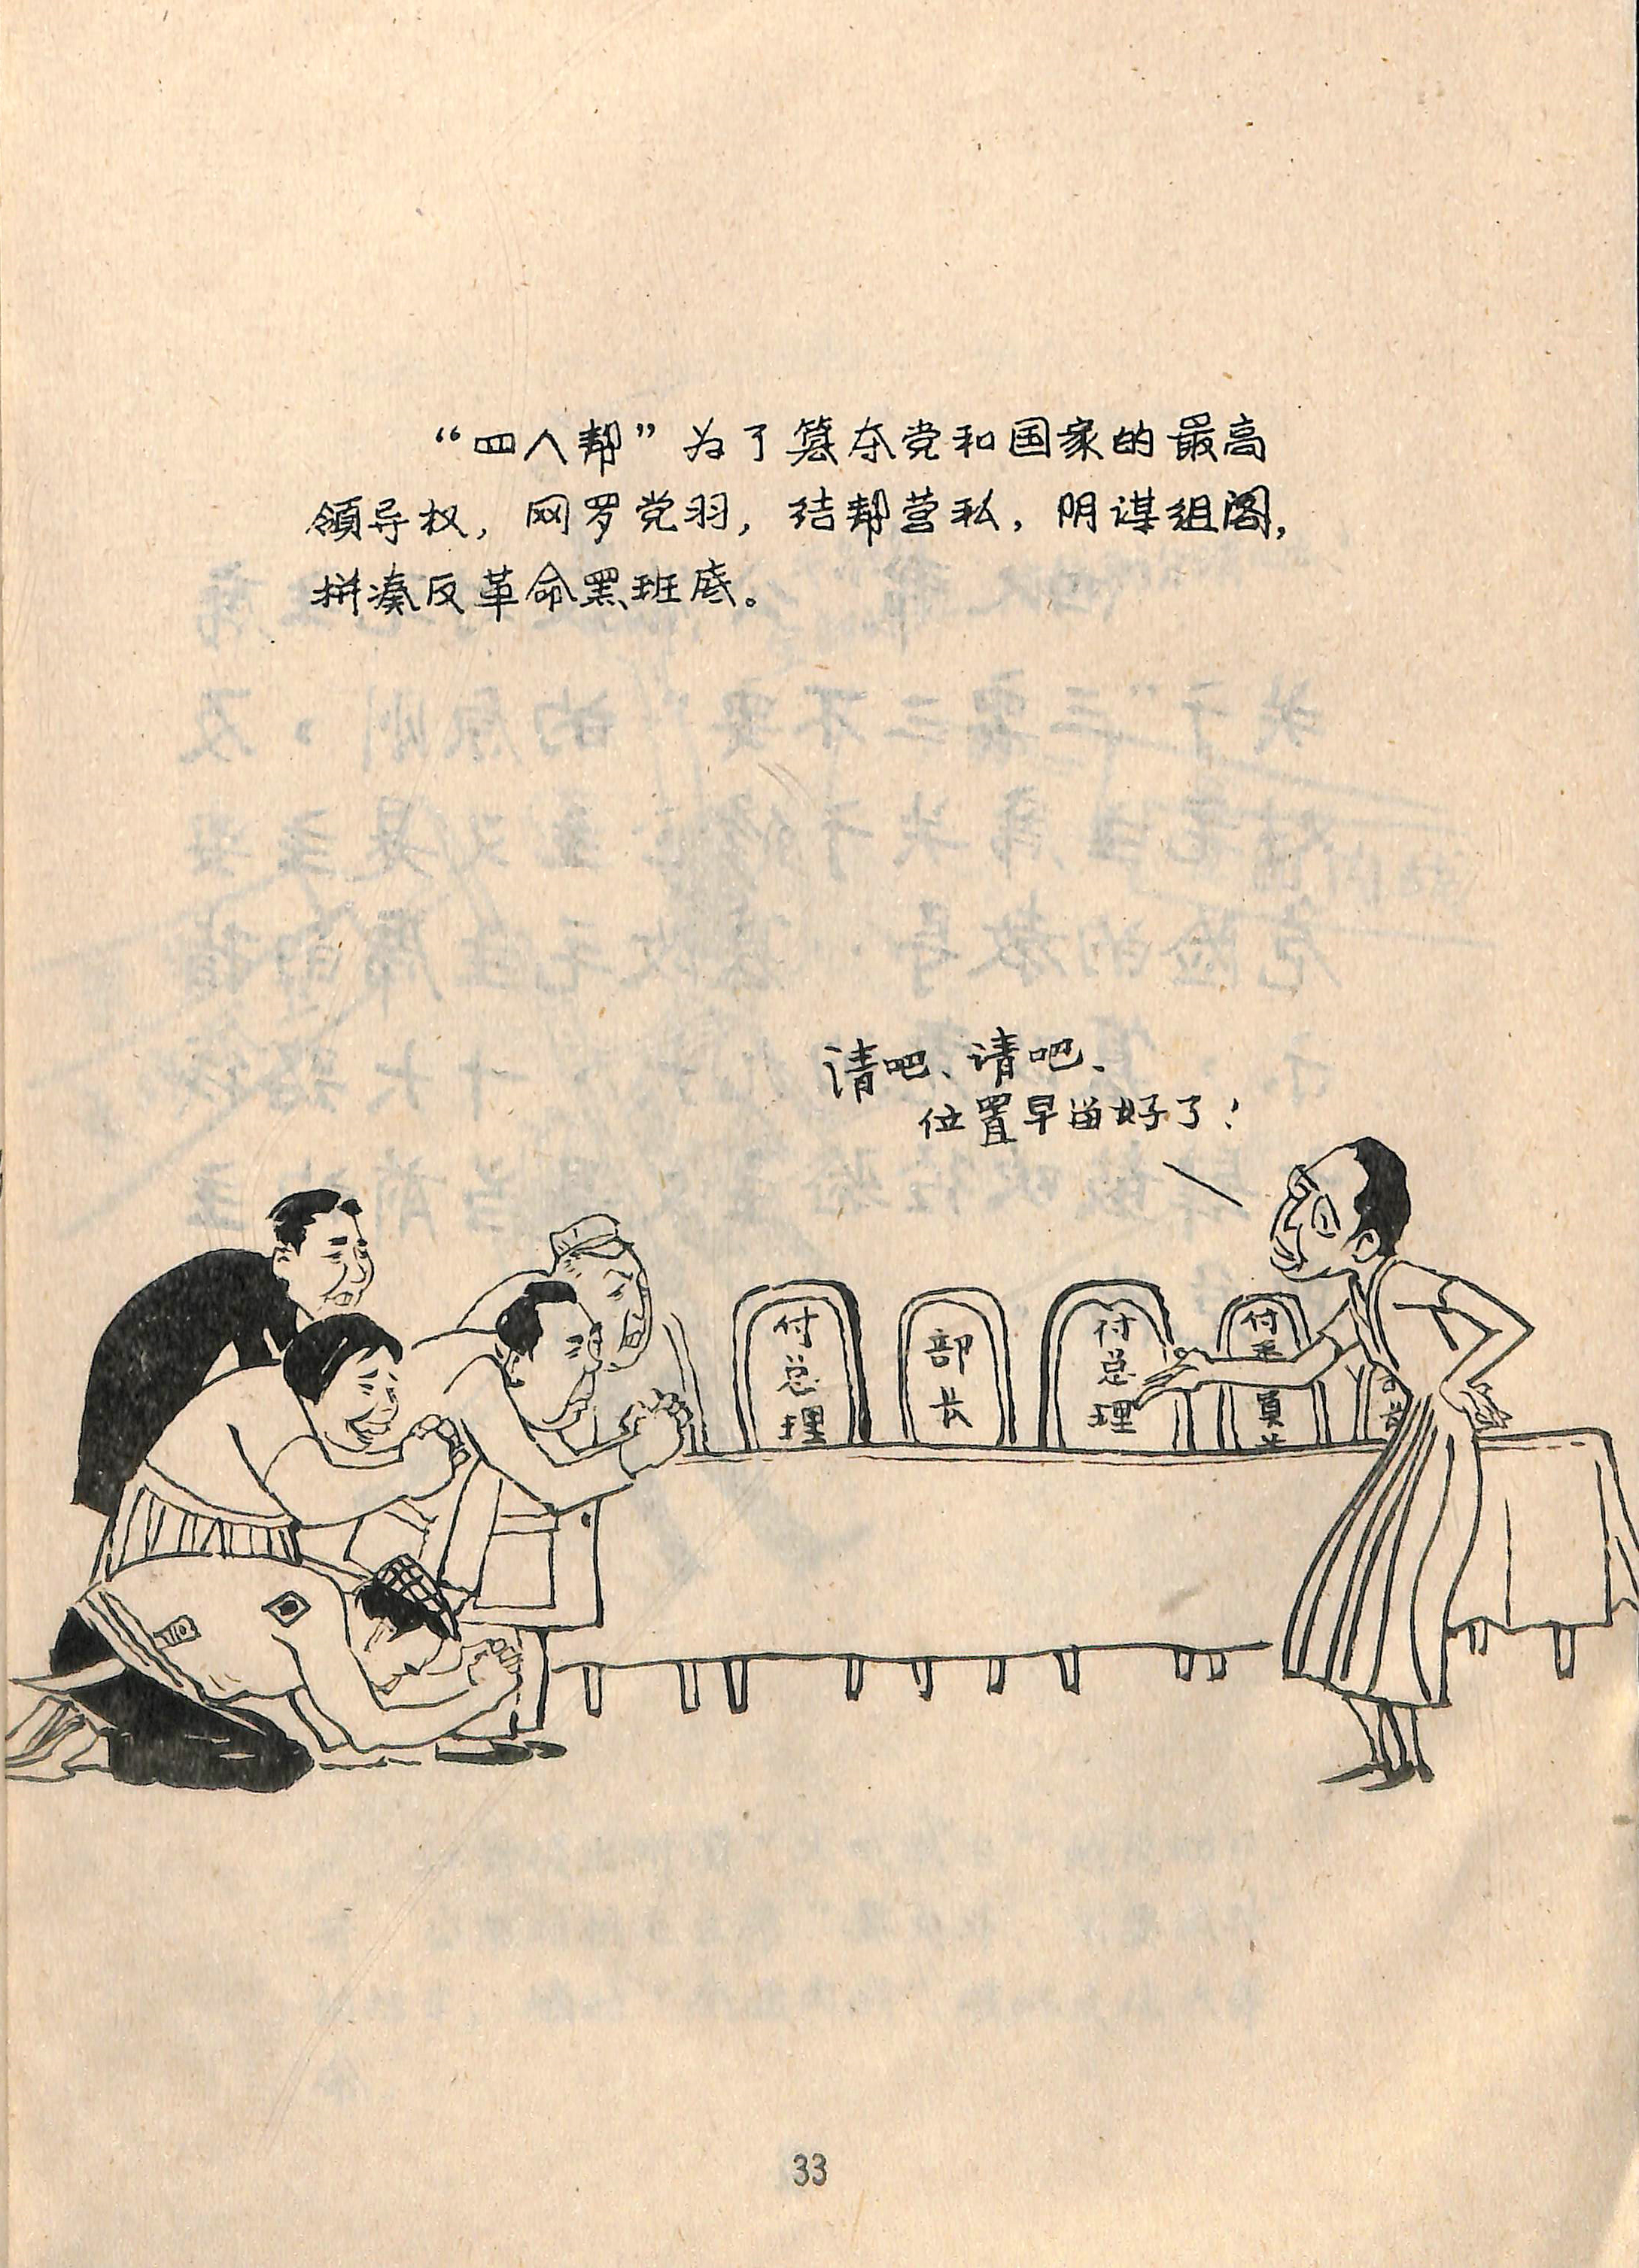 “四人帮”为了篡夺党和国家的最高
领导权，网罗党羽，结帮营私，阴谋组阁，
拼凑反革命黑班底。
请吧、请吧、
位置早留好了！
付总理
部长
付总理
付
員
33